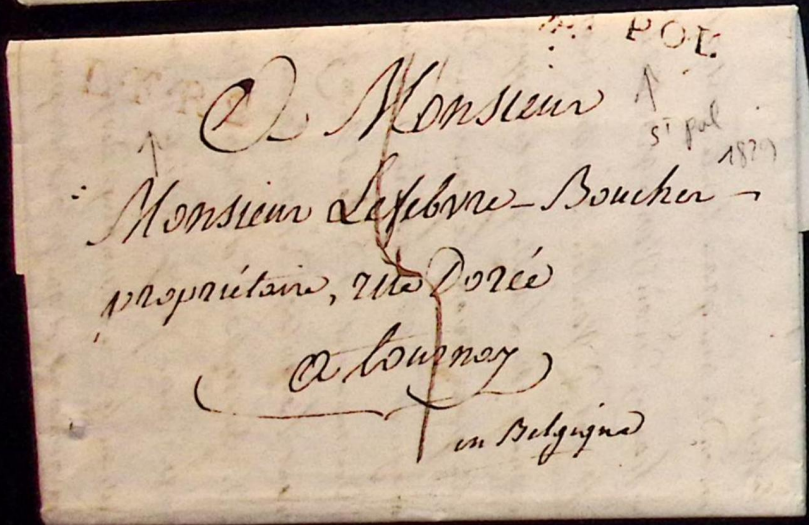 POL
St pol
1829
A Monsieur
Monsieur Lefebvre-Boucher
propriétaire, rue Dorée
a tournay
en Belgique